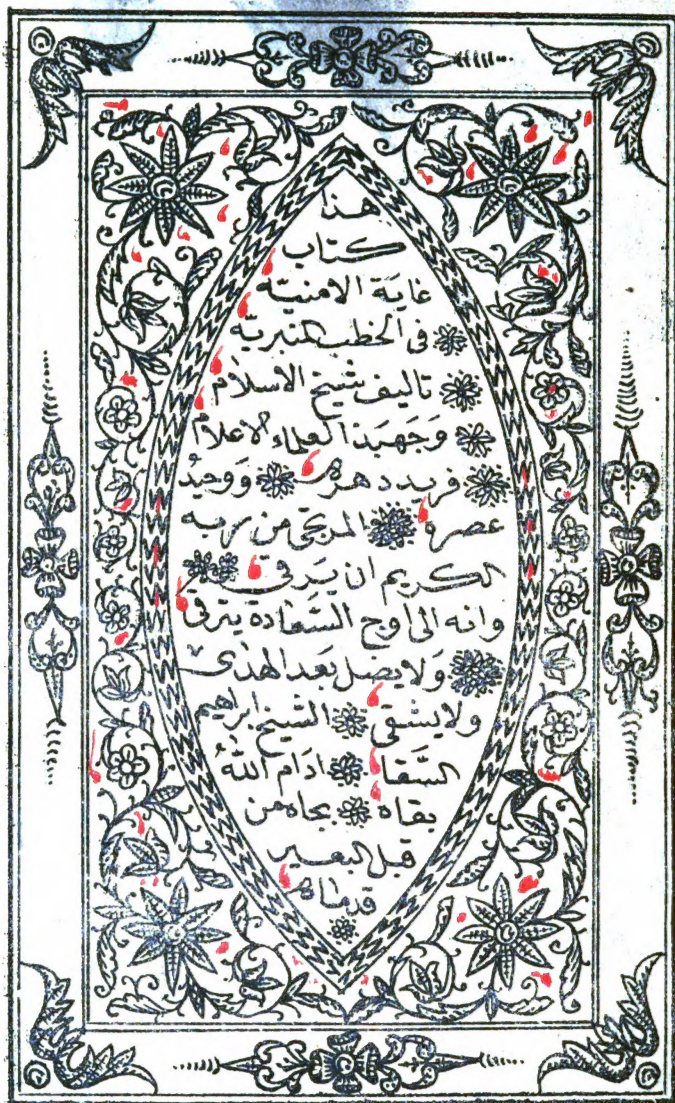 هذا
كتاب
غاية الامنيته
فى الخطب المنبريّه
تاليف شيخ الاسلام
وَجهبذ العلماء الاعلام
فريد دهره ووحيدُ
عصره المرتجى من ربه
الكريم ان يَرقى
وانه الى اوج السَّعادة يترقى
وَلا يضل بَعد الهدى
ولا يشقى الشيخ ابراهيم
السَّقا ادَام اللهُ
بقاه بجاه من
قبل البعير
قدماه